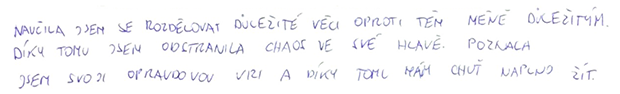 NAUČILA JSEM SE ROZDĚLOVAT DŮLEŽITÉ VĚCI OPROTI TĚM MÉNĚ DŮLEŽITÝM.
DÍKY TOMU JSEM ODSTRANILA CHAOS VE SVÉ HLAVĚ. POZNALA
JSEM SVOJI OPRAVDOVOU VIZI A DÍKY TOMU MÁM CHUŤ NAPLNO ŽÍT.